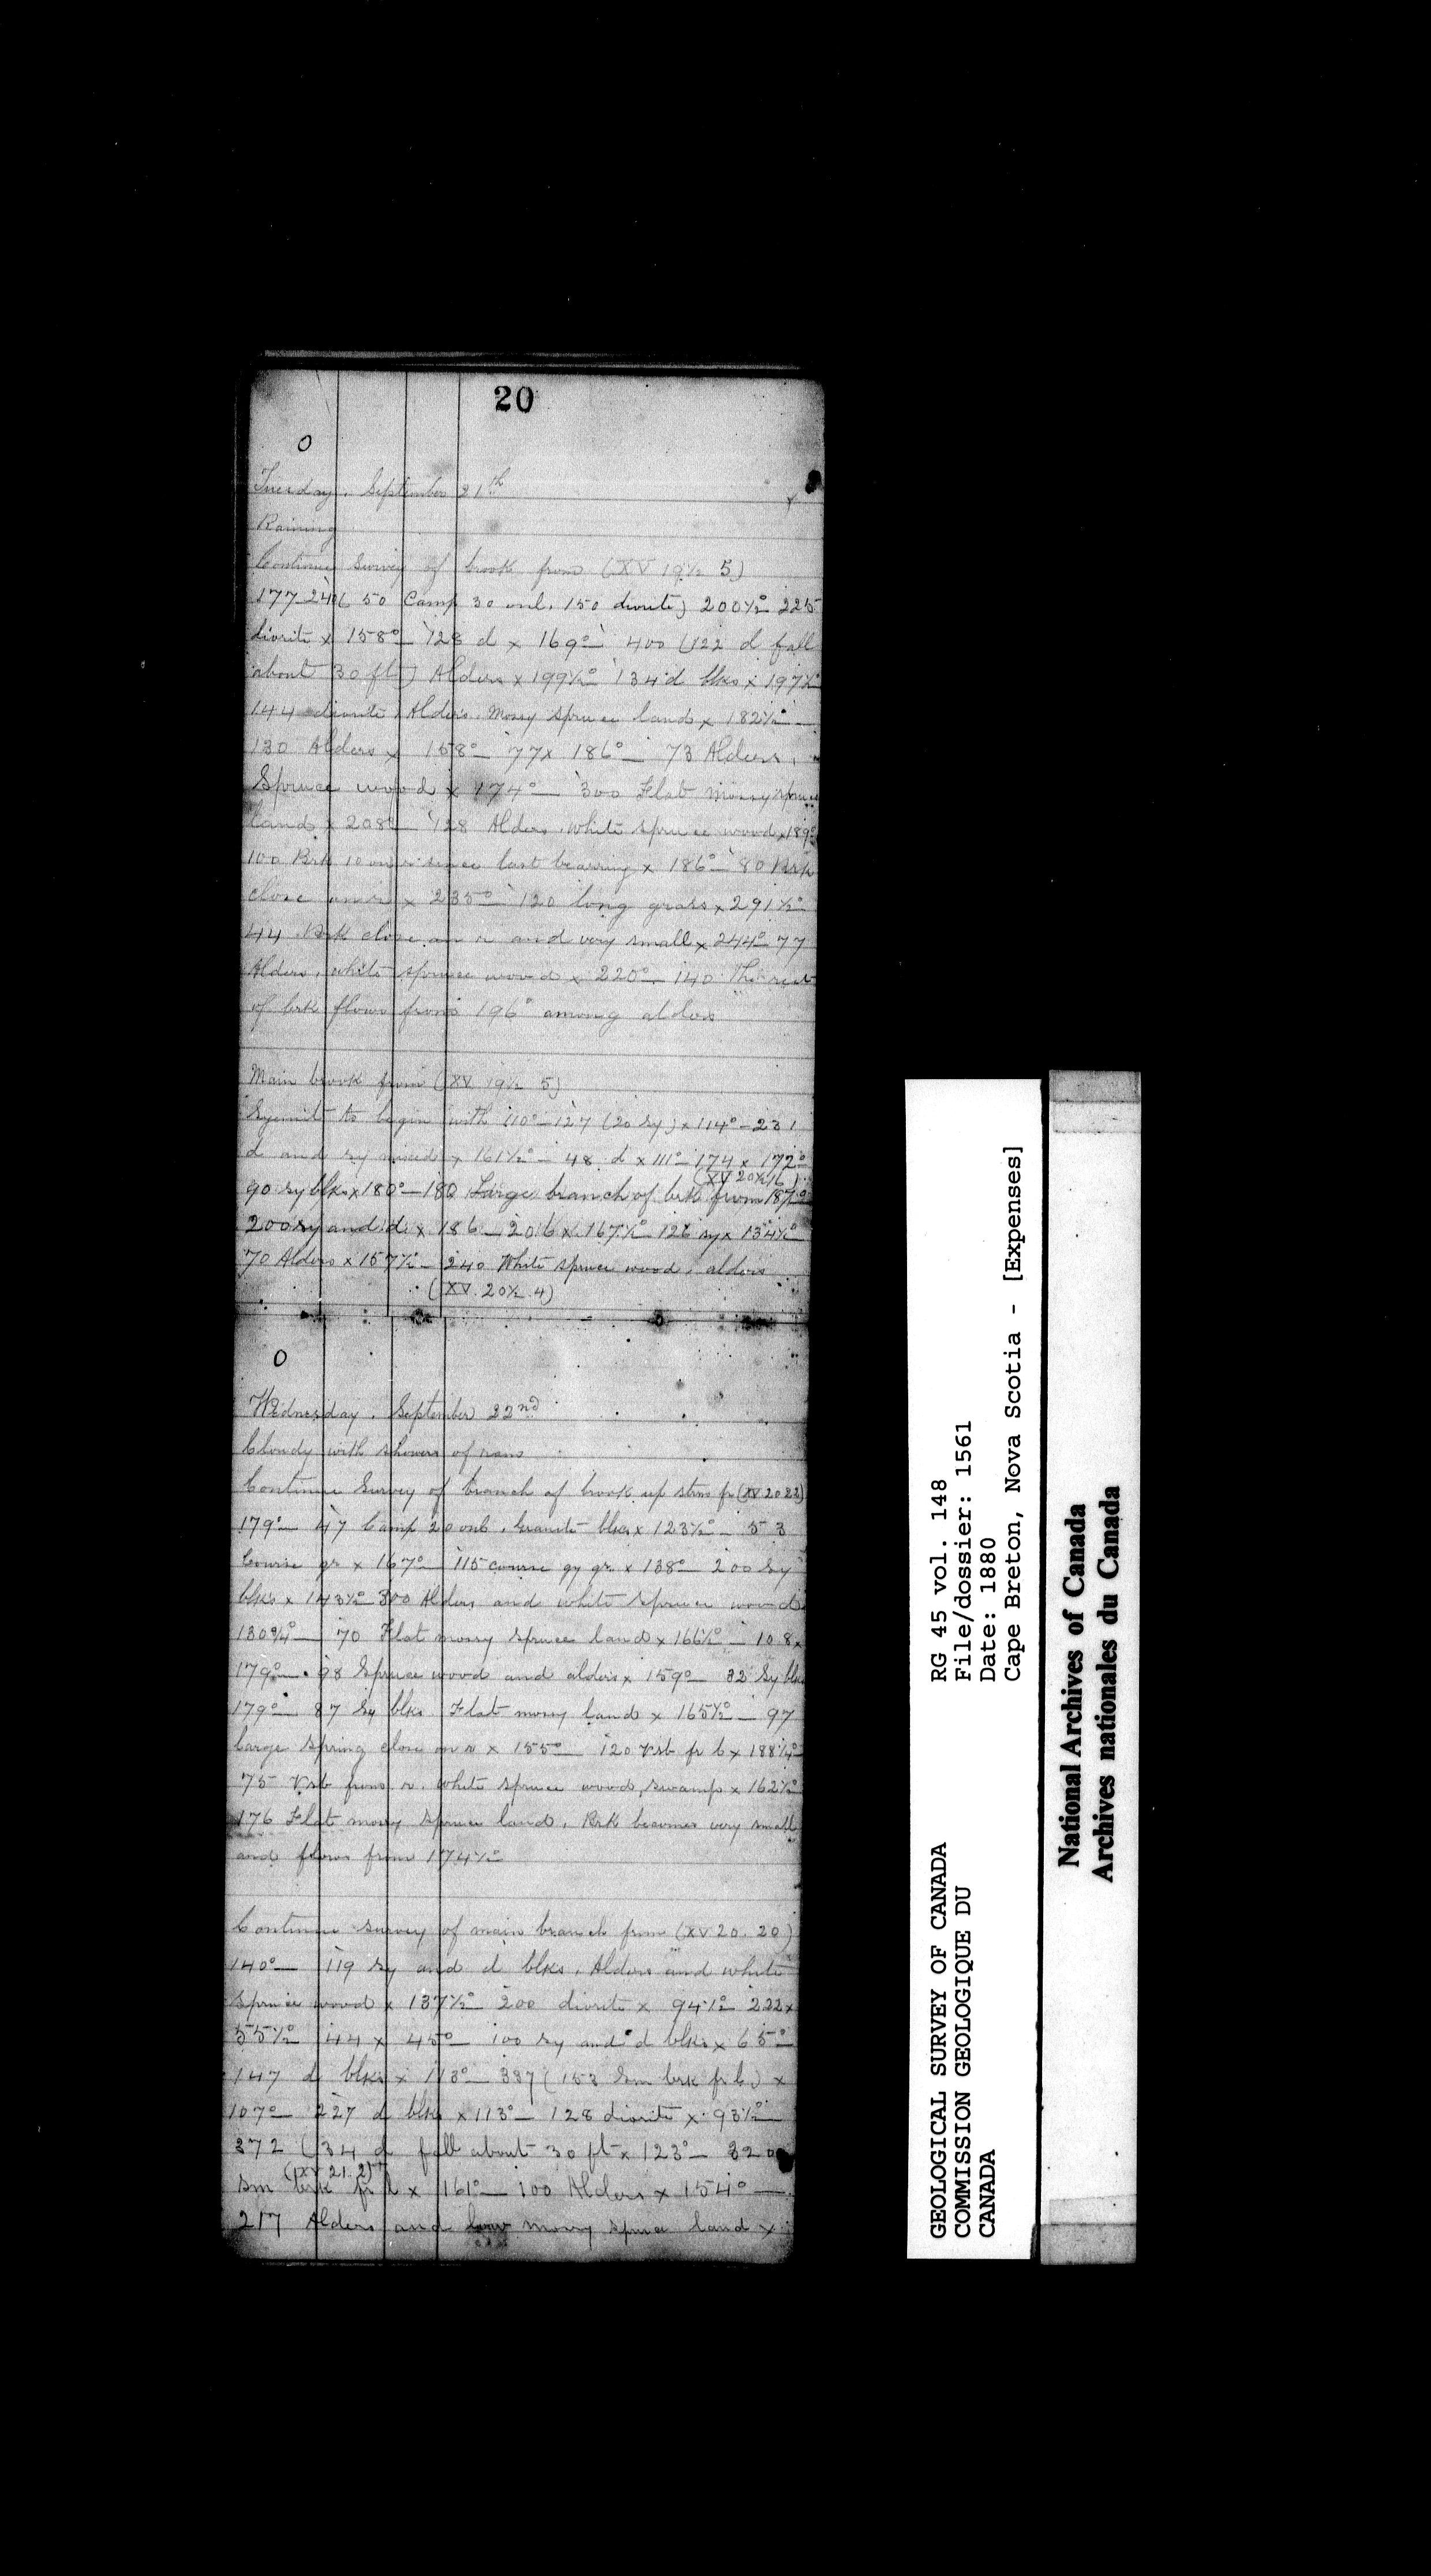 20
0
Tuesday, September 21th
Raining
Continue Survey of brook from (XV 19½ 5)
177 - 240( 50 Camp 30 onl. 150 diorite) 200½° 225
diorite x 158° - 128 d x 169° - 400 (122 d fall
about 30 ft) Alders x 199½° 134 d blks x 197½°
144 diorite. Alders. Mossy spruce land x 182½° -
130 Alders x 158° - 77 x 186° - 73 Alders,
Spruce wood x 174° - 300 Flat mossy spruce
land x 208° - 128 Alders, white spruce wood x 189°
100 Brk 10 on r since last bearing x 186° - 80 Brk
close on r x 235° - 120 long grass x 291½°
44 Brk close on r and very small x 244° - 77
Alders, white spruce wood x 220° - 140 The rest
of brk flows from 196° among alders
Main brook from (XV 19½ 5)
Syenite to begin with 110° - 127 (20 sy) x 114° - 231
d and sy mixed x 161½° - 48 d x 111° - 174 x 172°
(XV 20½ 16)
90 sy blks x 180° - 180 Large branch of brk from 187°
200 sy and d x 186 - 206 x 167½° 126 sy x 134½°
70 Alders x 157½ - 240 White spruce wood, alders
(XV. 20½ 4)
0
Wednesday, September 22nd
Cloudy with showers of rain
Continue Survey of branch of brook up strm fr (XV 20 22)
179° - 47 Camp 20 onl. Granite blks x 123½° - 53
Course gr x 167° - 115 course gy gr. x 138° - 200 Sy
blks x 143½° - 300 Alders and white spruce wood
130¾° - 70 Flat mossy spruce land x 166½° - 108 x
179° - 98 Spruce wood and alders x 159° - 32 Sy blks
179° - 87 Sy blks. Flat mossy land x 165½° - 97
large spring close on r x 155° - 120 Vsb fr l x 188¼°
75 Vsb from r. White spruce wood, swamp x 162½°
176 Flat mossy spruce land. Brk becomes very small
and flows from 174½
Continue survey of main branch from (XV 20. 20)
140° - 119 sy and d blks. Alders and white
spruce wood x 137½° 200 diorite x 94½° 222 x
55½° 44 x 45° - 100 sy and d blks x 65° -
147 d blks x 113° - 387 (153 Sm brk fr l.) x
107° - 227 d blks x 113° - 128 diorite x 93½° -
372 (34 d fall about 30 ft x 123° - 320
(XV 21. 2)
Sm brk fr l x 161° - 100 Alders x 154° -
217 Alders and low mossy spruce land x
GEOLOGICAL SURVEY OF CANADA
COMMISSION GEOLOGIQUE DU
CANADA
RG 45 vol. 148
File/dossier: 1561
Date: 1880
Cape Breton, Nova Scotia - [Expenses]
National Archives of Canada
Archives nationales du Canada